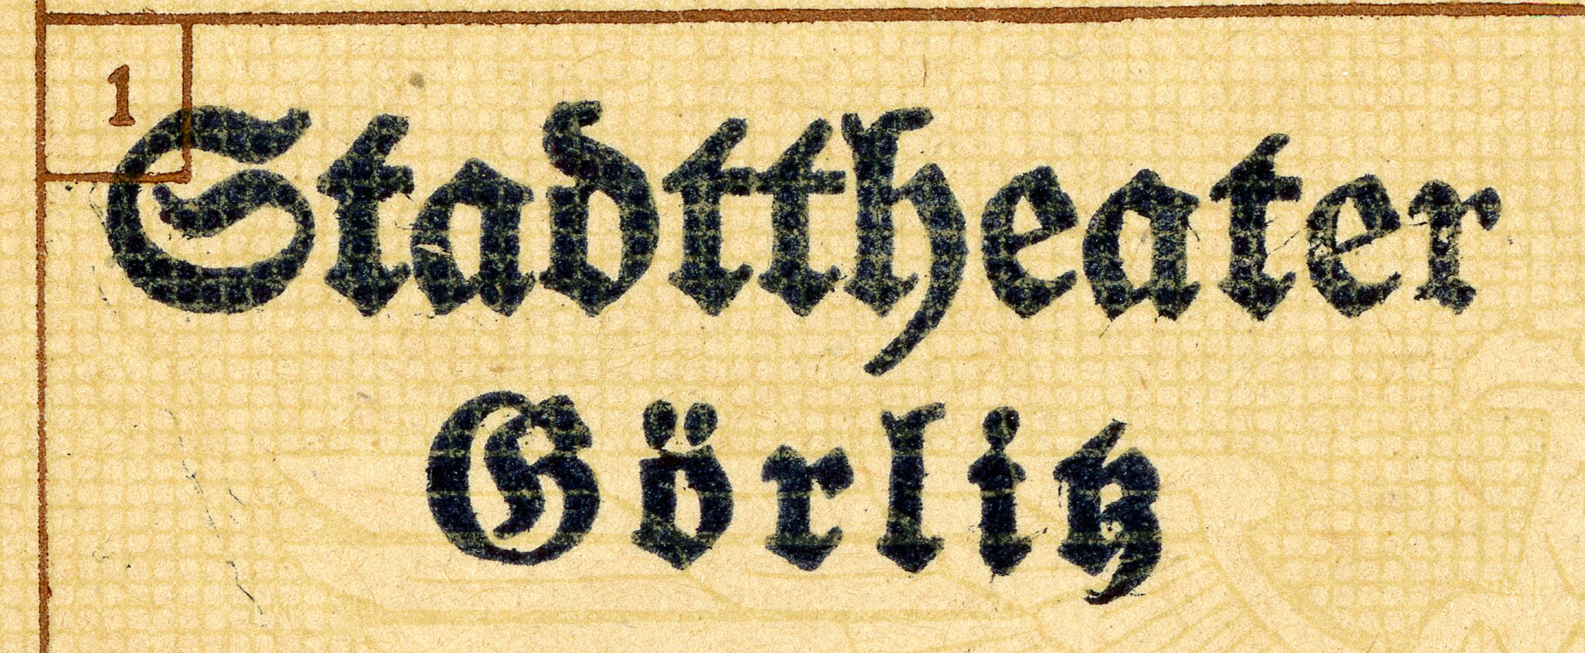 1
Stadttheater
Görlitz